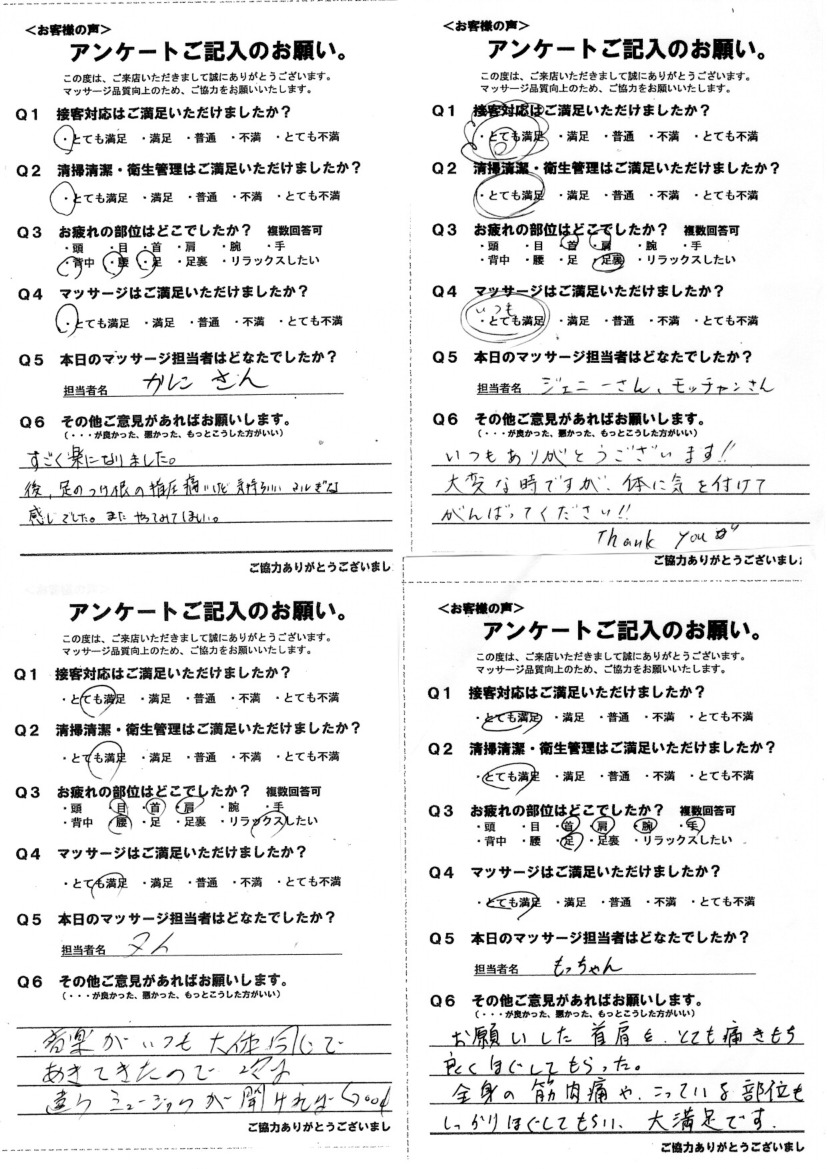 ＜お客様の声＞
アンケートご記入のお願い。
この度は、ご来店いただきまして誠にありがとうございます。
マッサージ品質向上のため、ご協力をお願いいたします。
Q1 接客対応はご満足いただけましたか？
・とても満足 ・満足 ・普通 ・不満 ・とても不満
Q2 清掃清潔・衛生管理はご満足いただけましたか？
・とても満足 ・満足 ・普通 ・不満 ・とても不満
Q3 お疲れの部位はどこでしたか？ 複数回答可
・頭 ・目 ・首 ・肩 ・腕 ・手
・背中 ・腰 ・足 ・足裏 ・リラックスしたい
Q4 マッサージはご満足いただけましたか？
・とても満足 ・満足 ・普通 ・不満 ・とても不満
Q5 本日のマッサージ担当者はどなたでしたか？
担当者名 かしこ さん
Q6 その他ご意見があればお願いします。
（・・・が良かった、悪かった、もっとこうした方がいい）
すごく楽になりました。
後、足のつけ根の指圧痛いけど気持ちいい
感じでした。また やってみてほしい。
ご協力ありがとうございまし
＜お客様の声＞
アンケートご記入のお願い。
この度は、ご来店いただきまして誠にありがとうございます。
マッサージ品質向上のため、ご協力をお願いいたします。
Q1 接客対応はご満足いただけましたか？
・とても満足 ・満足 ・普通 ・不満 ・とても不満
Q2 清掃清潔・衛生管理はご満足いただけましたか？
・とても満足 ・満足 ・普通 ・不満 ・とても不満
Q3 お疲れの部位はどこでしたか？ 複数回答可
・頭 ・目 ・首 ・肩 ・腕 ・手
・背中 ・腰 ・足 ・足裏 ・リラックスしたい
Q4 マッサージはご満足いただけましたか？
いつも
・とても満足 ・満足 ・普通 ・不満 ・とても不満
Q5 本日のマッサージ担当者はどなたでしたか？
担当者名 ジェニーさん、モッチャンさん
Q6 その他ご意見があればお願いします。
（・・・が良かった、悪かった、もっとこうした方がいい）
いつもありがとうございます!!
大変な時ですが、体に気を付けて
がんばってください!!
Thank you
ご協力ありがとうございまし
アンケートご記入のお願い。
この度は、ご来店いただきまして誠にありがとうございます。
マッサージ品質向上のため、ご協力をお願いいたします。
Q1 接客対応はご満足いただけましたか？
・とても満足 ・満足 ・普通 ・不満 ・とても不満
Q2 清掃清潔・衛生管理はご満足いただけましたか？
・とても満足 ・満足 ・普通 ・不満 ・とても不満
Q3 お疲れの部位はどこでしたか？ 複数回答可
・頭 ・目 ・首 ・肩 ・腕 ・手
・背中 ・腰 ・足 ・足裏 ・リラックスしたい
Q4 マッサージはご満足いただけましたか？
・とても満足 ・満足 ・普通 ・不満 ・とても不満
Q5 本日のマッサージ担当者はどなたでしたか？
担当者名
Q6 その他ご意見があればお願いします。
（・・・が良かった、悪かった、もっとこうした方がいい）
音楽がいつも大体同じで
あきてきたので
違うミュージックが聞ければGood
ご協力ありがとうございまし
＜お客様の声＞
アンケートご記入のお願い。
この度は、ご来店いただきまして誠にありがとうございます。
マッサージ品質向上のため、ご協力をお願いいたします。
Q1 接客対応はご満足いただけましたか？
・とても満足 ・満足 ・普通 ・不満 ・とても不満
Q2 清掃清潔・衛生管理はご満足いただけましたか？
・とても満足 ・満足 ・普通 ・不満 ・とても不満
Q3 お疲れの部位はどこでしたか？ 複数回答可
・頭 ・目 ・首 ・肩 ・腕 ・手
・背中 ・腰 ・足 ・足裏 ・リラックスしたい
Q4 マッサージはご満足いただけましたか？
・とても満足 ・満足 ・普通 ・不満 ・とても不満
Q5 本日のマッサージ担当者はどなたでしたか？
担当者名 もっちゃん
Q6 その他ご意見があればお願いします。
（・・・が良かった、悪かった、もっとこうした方がいい）
お願いした首肩を、とても痛きもち
良くほぐしてもらった。
全身の筋肉痛や、こっている部位も
しっかりほぐしてもらい、大満足です。
ご協力ありがとうございまし